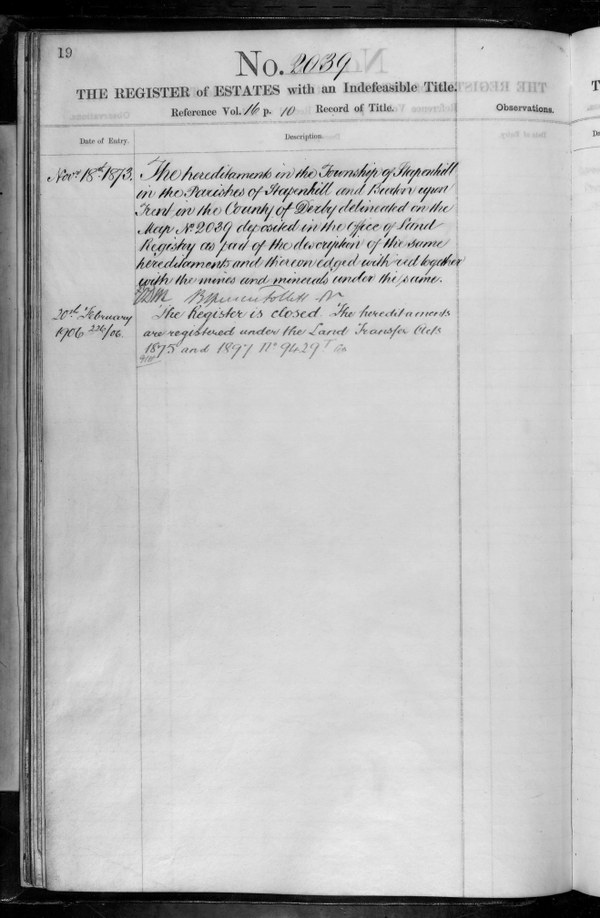 19
No. 2039
THE REGISTER of ESTATES with an Indefeasible Title.
Reference Vol. 16 p. 10 Record of Title.
Observations.
Date of Entry.
Description.
Novr 18th 1873.
The hereditaments in the Township of Stapenhill
in the Parishes of Stapenhill and Burton upon
Trent in the County of Derby delineated on the
Map No 2039 deposited in the Office of Land
Registry as part of the description of the same
hereditaments and thereon edged with red together
with the mines and minerals under the same.
Brent Follett
20th February
1906 226/06.
The Register is closed. The hereditaments
are registered under the Land Transfer Acts
1875 and 1897